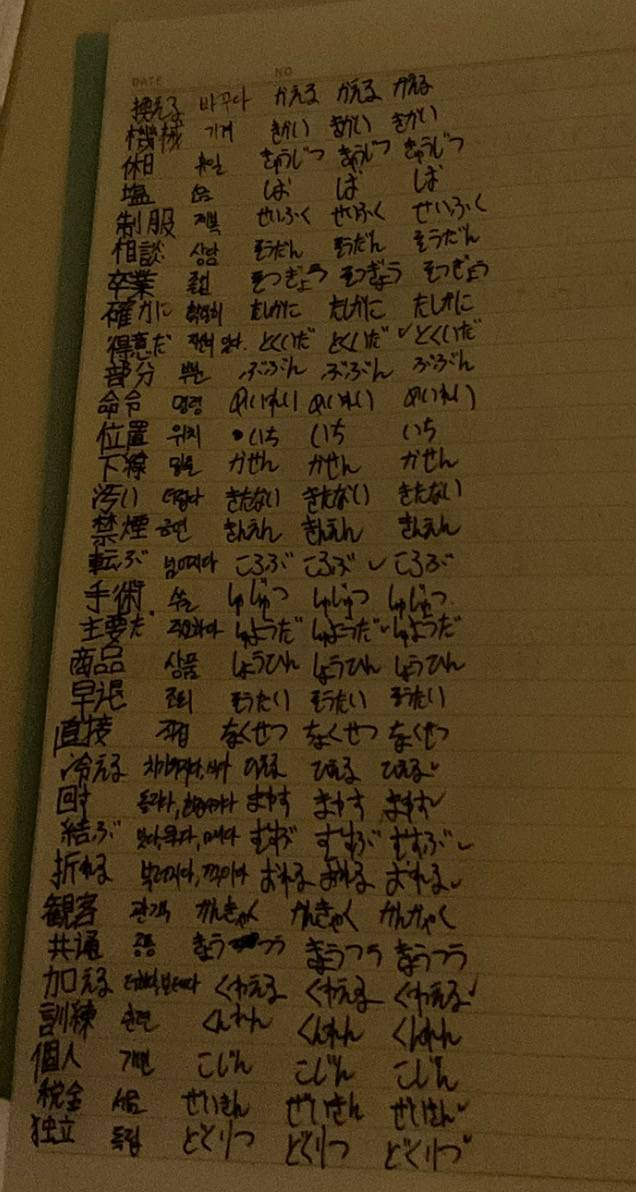 DATE NO
換える 바꾸다 かえる かえる かえる
機械 기계 きかい きかい きかい
休日 휴일 きゅうじつ きゅうじつ きゅうじつ
塩 소금 しば しば しば
制服 제복 せいふく せいふく せいふく
相談 상담 そうだん そうだん そうだん
卒業 졸업 そつぎょう そつぎょう そつぎょう
確かに 확실히 たしかに たしかに たしかに
得意だ とくいだ とくいだ とくいだ
部分 부분 ぶぶん ぶぶん ぶぶん
命令 명령 めいれい めいれい めいれい
位置 위치 いち いち いち
下線 밑줄 かせん かせん かせん
汚い 더럽다 きたない きたない きたない
禁煙 금연 きんえん きんえん きんえん
転ぶ 넘어지다 ころぶ ころぶ ころぶ
手術 수술 しゅじゅつ しゅじゅつ しゅじゅつ
主要だ 주요하다 しゅようだ しゅようだ しゅようだ
商品 상품 しょうひん しょうひん しょうひん
早退 조퇴 そうたい そうたい そうたい
直接 직접 ちょくせつ ちょくせつ ちょくせつ
冷える ひえる ひえる ひえる
回す まわす まわす まわす
結ぶ むすぶ むすぶ むすぶ
折れる おれる おれる おれる
観客 관객 かんきゃく かんきゃく かんきゃく
共通 공통 きょう つう きょうつう きょうつう
加える くわえる くわえる くわえる
訓練 훈련 くんれん くんれん くんれん
個人 개인 こじん こじん こじん
税金 세금 ぜいきん ぜいきん ぜいきん
独立 독립 どくりつ どくりつ どくりつ